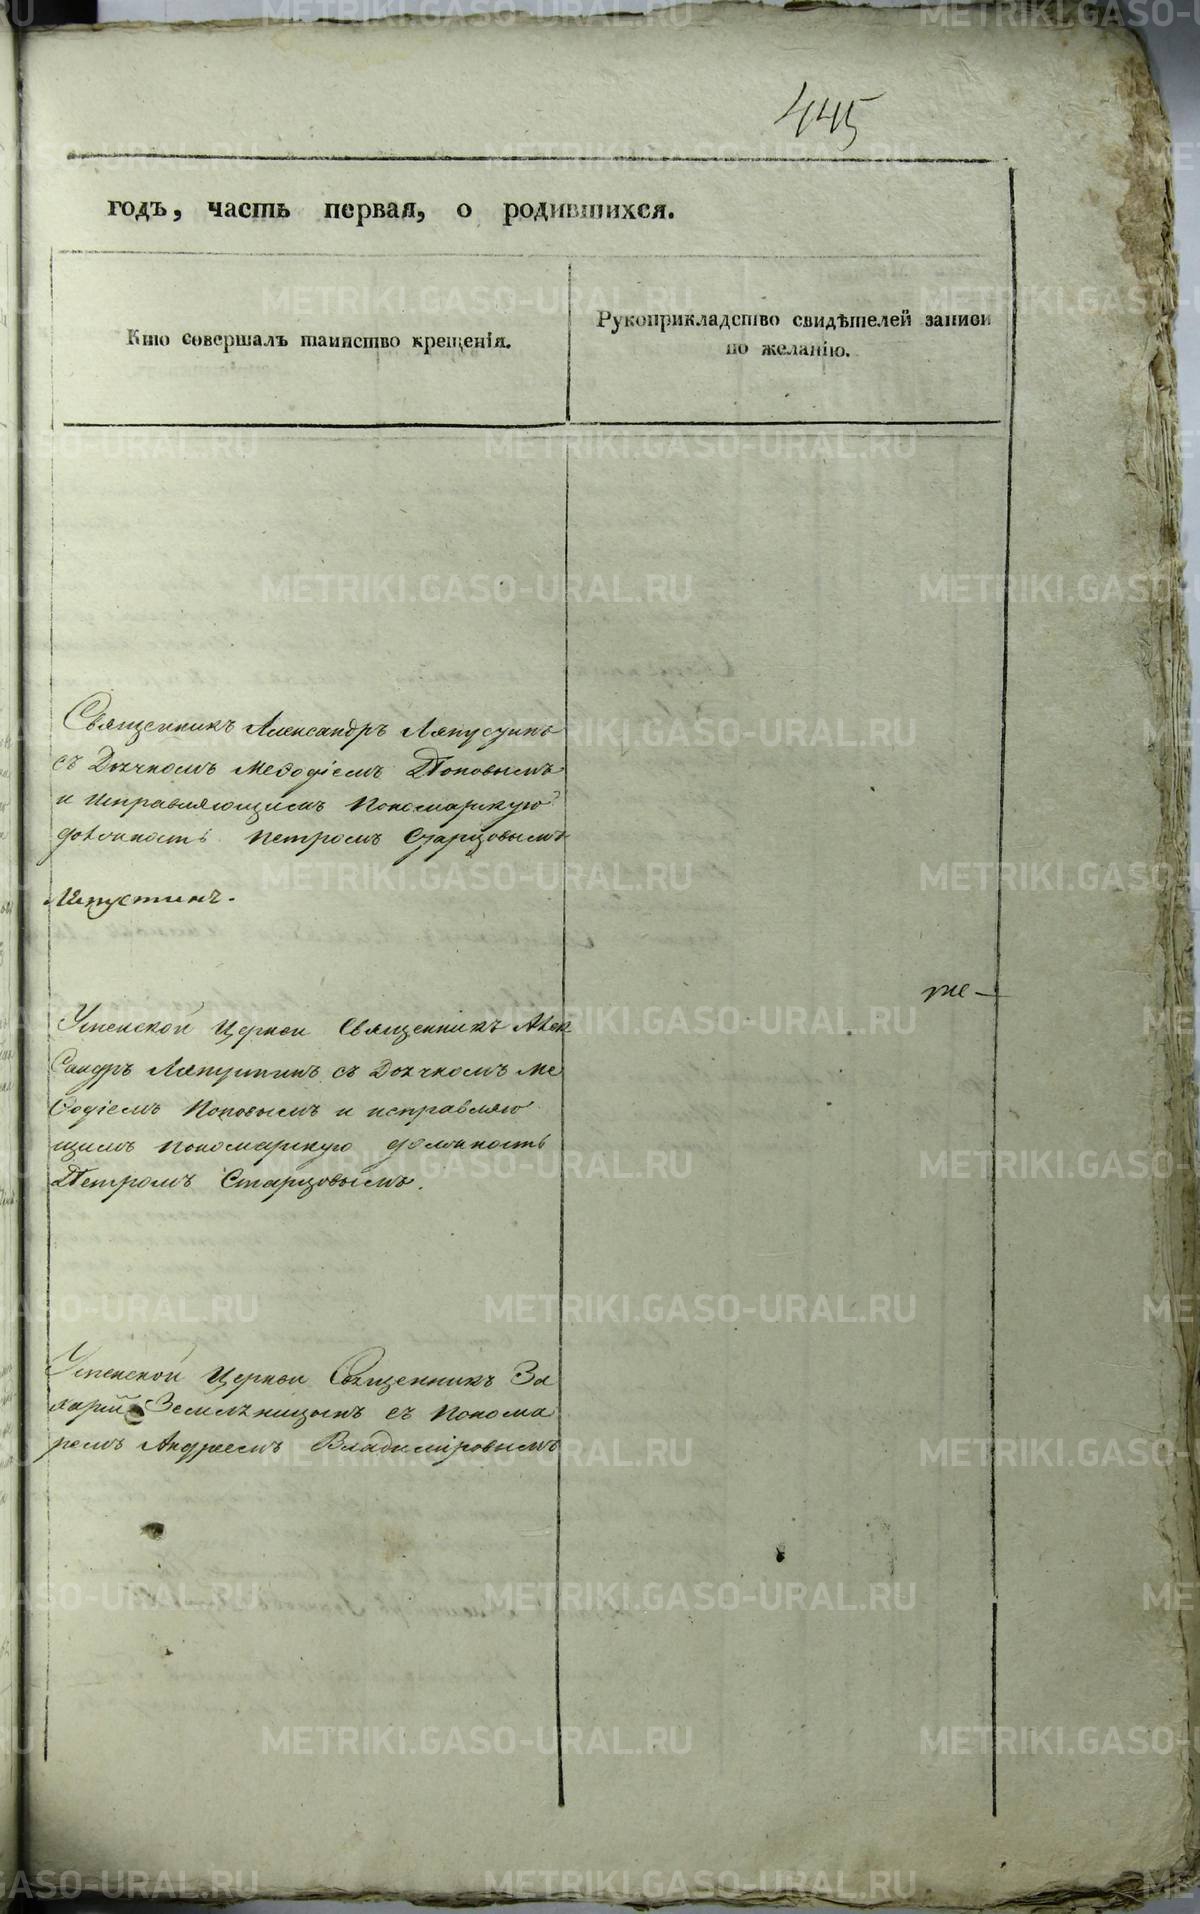 445
годъ, часть первая, о родившихся.
Кто совершалъ таинство крещенія.
Рукоприкладство свидѣтелей записи
по желанію.
Священникъ Александръ Ляпустинъ
съ Дьячкомъ Меѳодіемъ Поповымъ
и исправляющимъ пономарскую
должность Петромъ Старцовымъ
Ляпустинъ.
же-
Успенской Церкви Священникъ Алек
сандръ Ляпустинъ съ Дьячкомъ Ме
ѳодіемъ Поповымъ и исправляю
щимъ пономарскую должность
Петромъ Старцовымъ.
Успенской Церкви Священникъ За
харій Землѣницынъ съ Понома
ремъ Андреемъ Владиміровымъ
METRIKI.GASO-URAL.RU